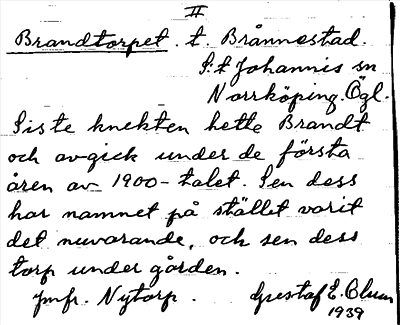 II
Brandtorpet. t. Brånnestad.
S:t Johannis sn
Norrköping. Ögl.
Siste knekten hette Brandt
och avgick under de första
åren av 1900-talet. Sen dess
har namnet på stället varit
det nuvarande, och sen dess
torp under gården.
Jmfr. Nytorp. Gustaf E. Blum
1939